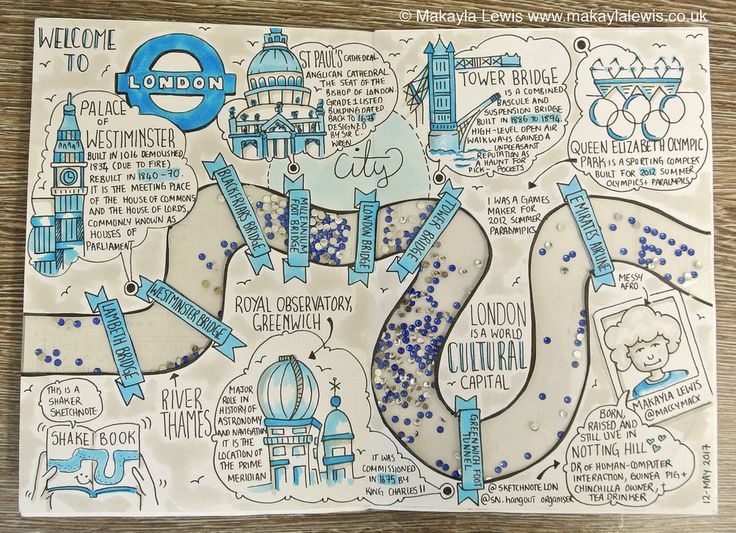 © Makayla Lewis www.makaylalewis.co.uk
WELCOME
TO
LONDON
PALACE
OF
WESTMINSTER
BUILT IN 1016 DEMOLISHED
1834 (DUE TO FIRE)
REBUILT IN 1840-70
IT IS THE MEETING PLACE
OF THE HOUSE OF COMMONS
AND THE HOUSE OF LORDS.
COMMONLY KNOWN AS
HOUSES OF
PARLIAMENT
ST PAUL'S CATHEDRAL
ANGLICAN CATHEDRAL
THE SEAT OF THE
BISHOP OF LONDON.
GRADE 1 LISTED
BUILDING DATED
BACK TO 1675
DESIGNED
BY SIR C.
WREN
city
TOWER BRIDGE
IS A COMBINED
BASCULE AND
SUSPENSION BRIDGE
BUILT IN 1886 TO 1894.
HIGH-LEVEL OPEN AIR
WALKWAYS GAINED A
UNPLEASANT
REPUTATION AS
A HAUNT FOR
PICK-POCKETS
QUEEN ELIZABETH OLYMPIC
PARK IS A SPORTING COMPLEX
BUILT FOR 2012 SUMMER
OLYMPICS + PARALYMPICS
I WAS A GAMES
MAKER FOR
2012 SUMMER
PARALYMPICS
BLACKFRIARS BRIDGE
MILLENNIUM
FOOT BRIDGE
LONDON BRIDGE
TOWER BRIDGE
EMIRATES AIRLINE
LAMBETH BRIDGE
WESTMINSTER BRIDGE
RIVER
THAMES
ROYAL OBSERVATORY,
GREENWICH
MAJOR
ROLE IN
HISTORY OF
ASTRONOMY
AND NAVIGATION
IT IS THE
LOCATION OF
THE PRIME
MERIDIAN
IT WAS
COMMISSIONED
IN 1675 BY
KING CHARLES II
LONDON
IS A WORLD
CULTURAL
CAPITAL
GREENWICH FOOT
TUNNEL
MESSY
AFRO
MAKAYLA LEWIS
@MACCYMACX
BORN,
RAISED AND
STILL LIVE IN
NOTTING HILL
DR OF HUMAN-COMPUTER
INTERACTION, GUINEA PIG +
CHINCHILLA OWNER, +
TEA DRINKER
@SKETCHNOTE.LDN
@SN.HANGOUT ORGANISER
12-MAY 2017
THIS IS A
SHAKER
SKETCHNOTE
SHAKE BOOK